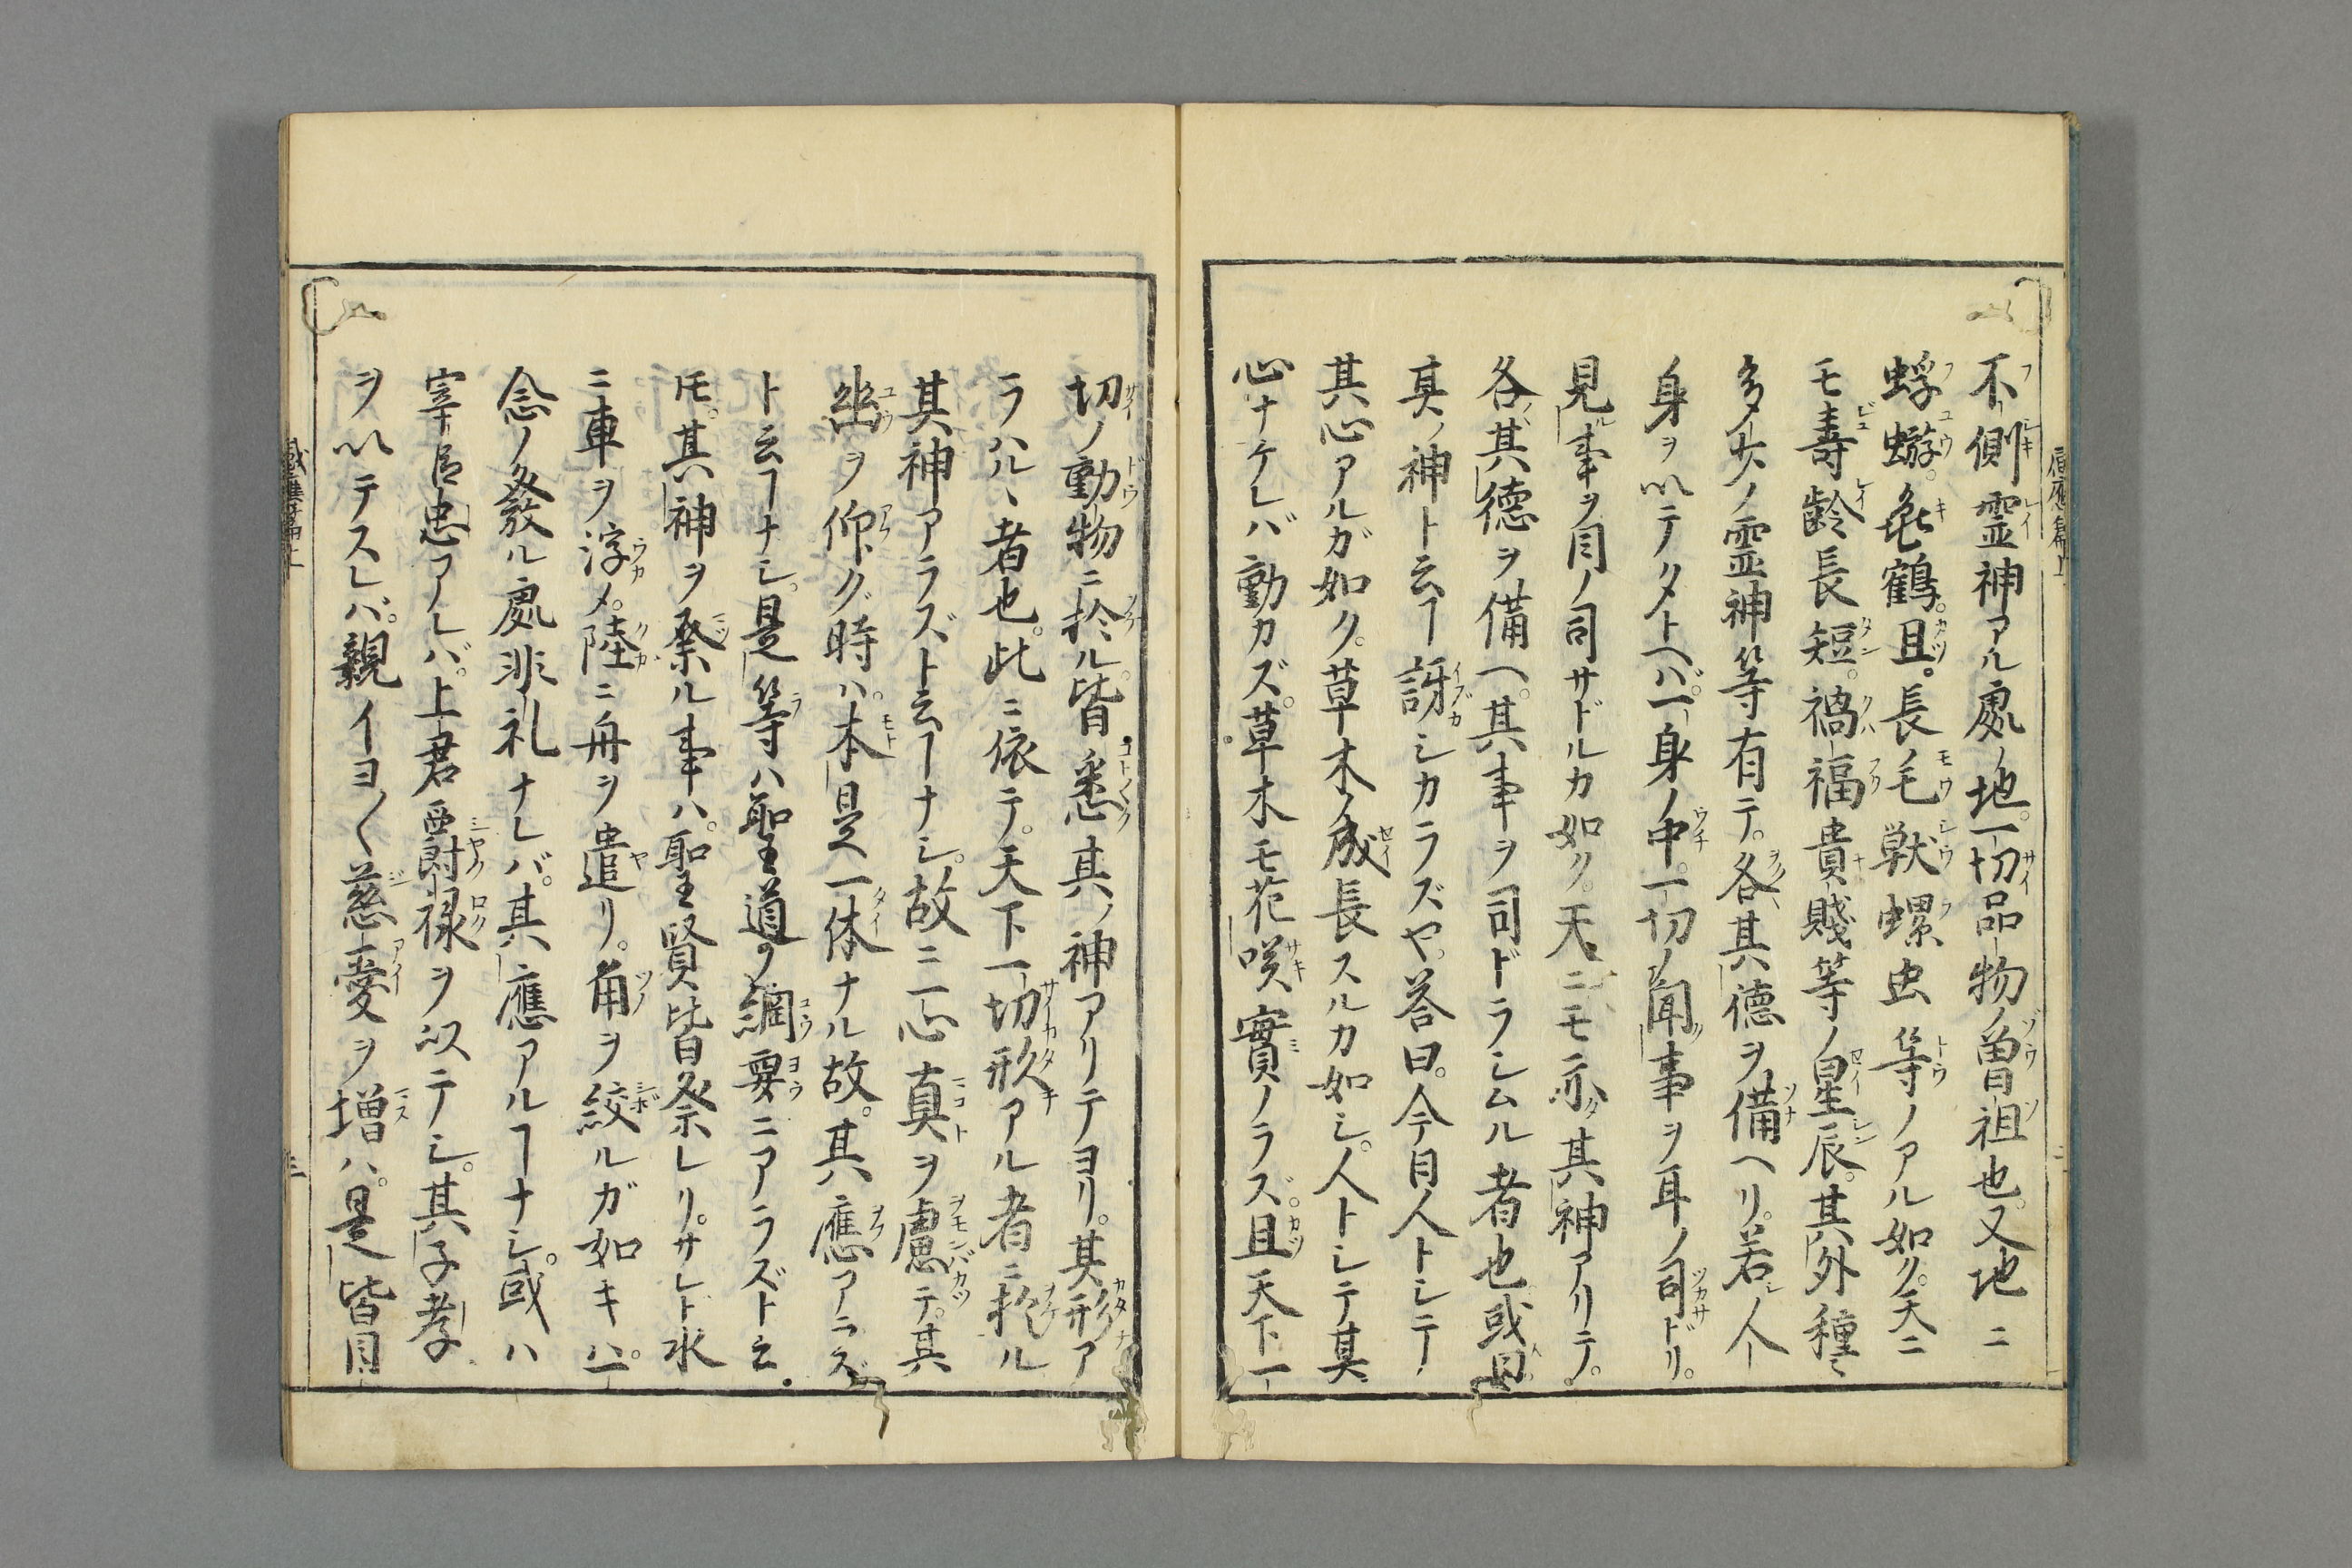 不側霊神アル處ノ地。一切品物ノ曽祖也。又地ニ
蜉蝣。亀鶴。且。長ノ毛獣螺虫等ノアル如ク。天ニ
モ壽齢長短。禍福貴賤等ノ星辰。其外種々
多夛ノ霊神等有テ。各其德ヲ備ヘリ。若人
身ヲ以テタトヘバ。一身ノ中。一切ノ聞事ヲ耳ノ司ドリ。
見ル事ヲ目ノ司サドルカ如ク。天ニモ亦其神アリテ。
各其德ヲ備ヘ。其事ヲ司ドラシムル者也或曰。
其ノ神ト云ヿ訝シカラズヤ。荅曰。今目人トシテ
其心アルガ如ク。草木ノ成長スルカ如シ。人トシテ其
心ナケレバ動カズ。草木モ花咲實ノラズ。且天下一
切ノ動物ニ於ル。皆悉其ノ神アリテヨリ。其形ア
ラハルヽ者也。此ニ依テ。天下一切形アル者ニ於ル
其神アラズト云ヿナシ。故ニ一心真ヲ慮テ。其
幽ヲ仰グ時ハ。本是一体ナル故。其應アラズ
ト云ヿナシ。是等ハ聖道ノ綱要ニアラズト云
𪜈。其神ヲ祭ル事ハ。聖賢皆祭レリ。サレト水
ニ車ヲ浮メ。陸ニ舟ヲ遣リ。角ヲ絞ルガ如キハ。一
念ノ發ル處非礼ナレバ。其應アルヿナシ。或ハ
宰臣忠アレバ。上君爵禄ヲ以テシ。其子孝
ヲ以テスレバ。親イヨ〱慈愛ヲ増ハ。是皆目